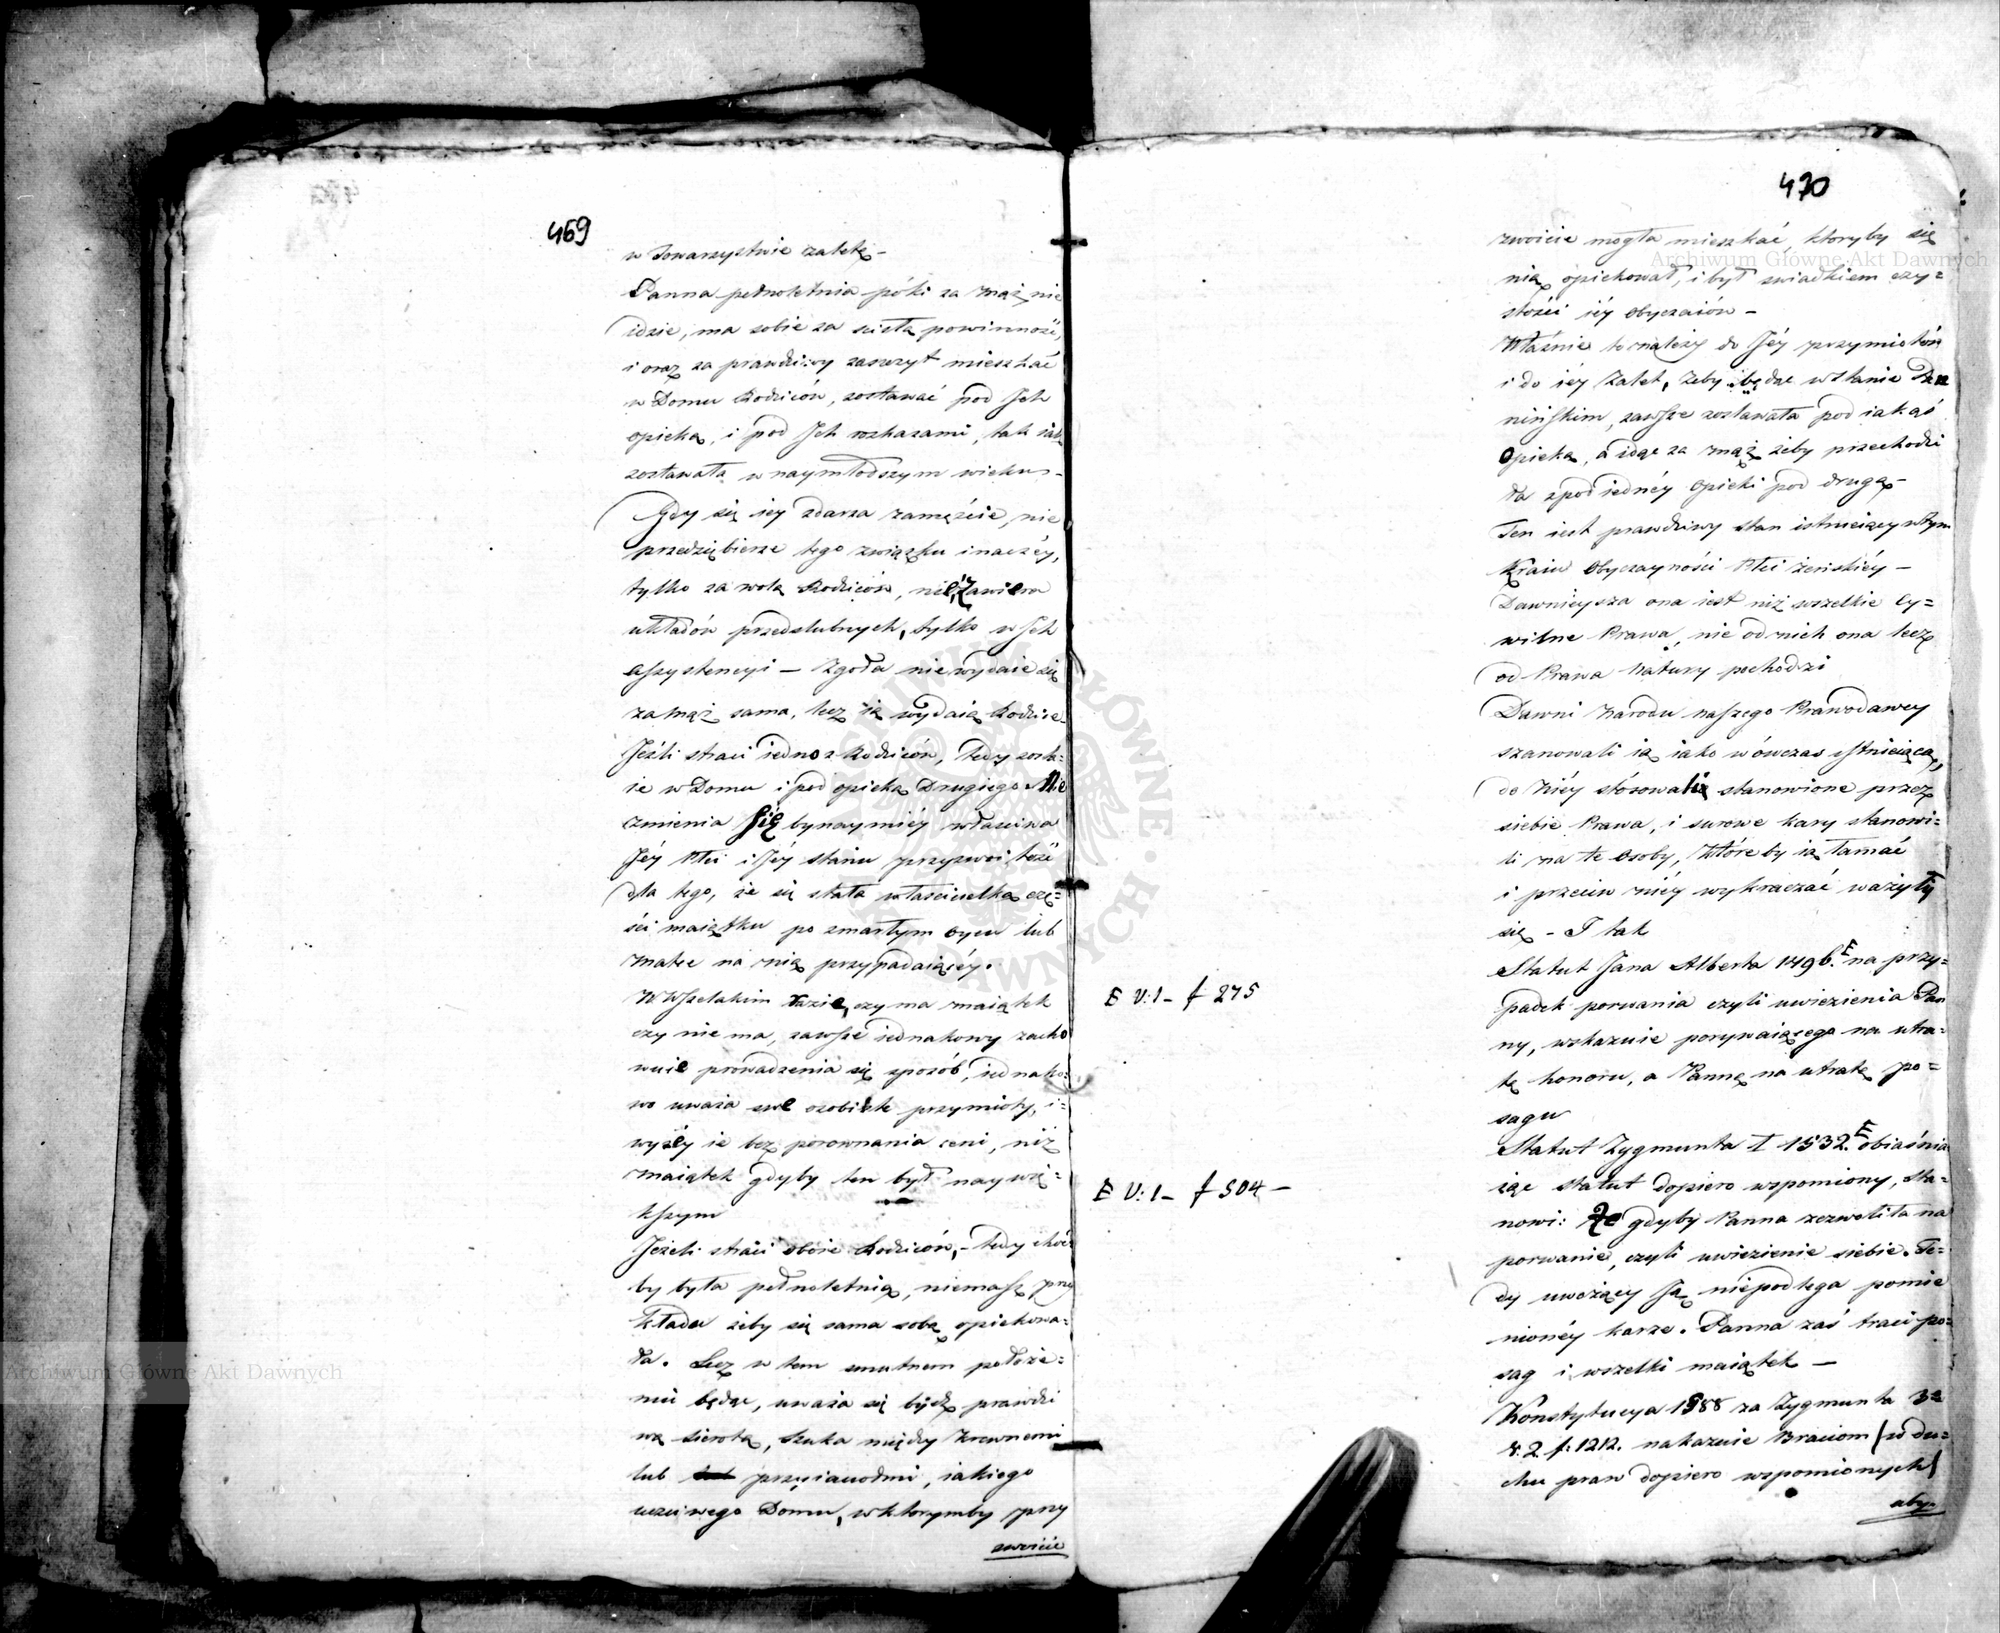 469
w Towarzystwie zaletę-
Panna pełnoletnia póki za mąż nie
idzie, ma sobie za scisłą powinność,
i oraz za prawdziwy zaszczyt mieszkać
w Domu Rodziców, zostawać pod Jch
opieką, i pod Jch rozkazami, tak iak
zostawała w naymłodszym wieku-
Gdy się iey zdarza zamęście, nie
przedsiębierze tego związku inaczéy,
tylko za wolą Rodziców, nie zawiera
układów przedslubnych, tylko w Jch
Assystencyi - Zgoła nie wydaie się
za mąż sama, lecz ią wydaią Rodzice
Jeżli straci iedno z Rodziców, tedy zosta=
ie w Domu i pod opieką Drugiego. Nie
zmienia się bynaymiéy własciwa
Jéy Płci i Jéy stanu przyzwoitość
dla tego, że się stała włascicielką czę=
ści maiątku po zmarłym oycu lub
matce na nią przypadaiącéy.
W Wszelakim razie, czy ma maiątek
czy nie ma, zawsze iednakowy zacho
wuie prowadzenia się sposób, iednako=
wo uważa swe osobiste przymioty, i=
wyżéy ie bez porownania ceni, niż
maiątek gdyby ten był naywię=
kszym
Jeżeli straci oboie Rodziców, - tedy choć
by była pełnoletnią, niemasz przy
kładu żeby się sama sobą opiekowa=
ła. Lecz w tem smutnem położe=
niu będąc, uważa się bydź prawdzi
wą sierotą, szuka między krewnemi
lub przyiaciołmi, iakiego
uczciwego Domu, w ktorymby przy
zwoicie
470
zwoicie mogła mieszkać, ktoryby się
nią opiekował, i był swiadkiem czy=
stości iéy obyczaiów -
Właśnie to należy do Jéy przymiotów
i do iéy zalet, żeby będąc w stanie Pa
nińskim, zawsze zostawała pod iakąś
Opieką, a idąc za mąż żeby przechodzi
ła zpod iednéy Opieki pod drugą-
Ten iest prawdziwy stan istnieiącey w tym
Kraiu Obyczayności Płci żeńskiéy -
Dawnieysza ona iest niż wszelkie Cy=
wilne Prawa, nie od nich ona lecz
od Prawa Natury pochodzi
Dawni Narodu naszego Prawodawcy
szanowali ią iako wówczas istnieiącą,
do Niéy stósowali stanowione przez
siebie Prawa, i surowe kary stanowi=
li na te Osoby, które by ią łamać
i przeciw niéy wykraczać ważyły
się - I tak
Statut Jana Alberta 1496. E na przy=
padek porwania czyli uwiezienia Pan
ny, wskazuie porywaiącego na utra=
tę honoru, a Pannę na utratę po=
sagu
E V: 1 - f 275
Statut Zygmunta I 1532. E obiaśnia
iąc statut dopiero wspomiony, sta=
nowi: Że gdyby Panna zezwoliła na
porwanie, czyli uwiezienie siebie. Te=
dy uwożący Ją niepodlega pomie
nionéy karze. Panna zaś traci po=
sag i wszelki maiątek -
E V: 1 - f 504 -
Konstytucya 1588 za Zygmunta 3°
V. 2. f: 1212. nakazuie Braciom / w du=
chu praw dopiero wspomionych /
aby
Archiwum Główne Akt Dawnych
Archiwum Główne Akt Dawnych